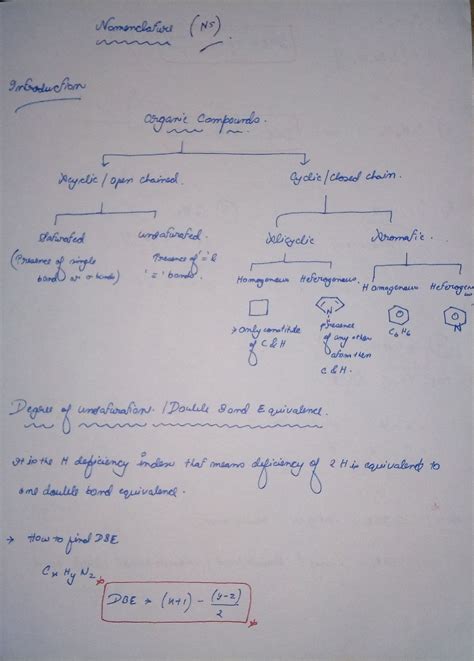 Nomenclature (NS)
Introduction
Organic Compounds.
Acyclic/open chained. Cyclic/closed chain.
Saturated unsaturated. Alicyclic Aromatic.
(Presence of single bond or σ bonds) Presence of '=' & '≡' bonds.
Homogeneous Heterogeneous Homogeneous Heterogeneous
N N
C6H6
→ only constitute of C & H
presence of any other atom then C & H.
Degree of unsaturation / Double Bond Equivalence.
It is the H deficiency index that means deficiency of 2 H is equivalend to
one double bond equivalence.
→ How to find DBE
Cx Hy Nz
DBE → (x+1) - (y-z)/2